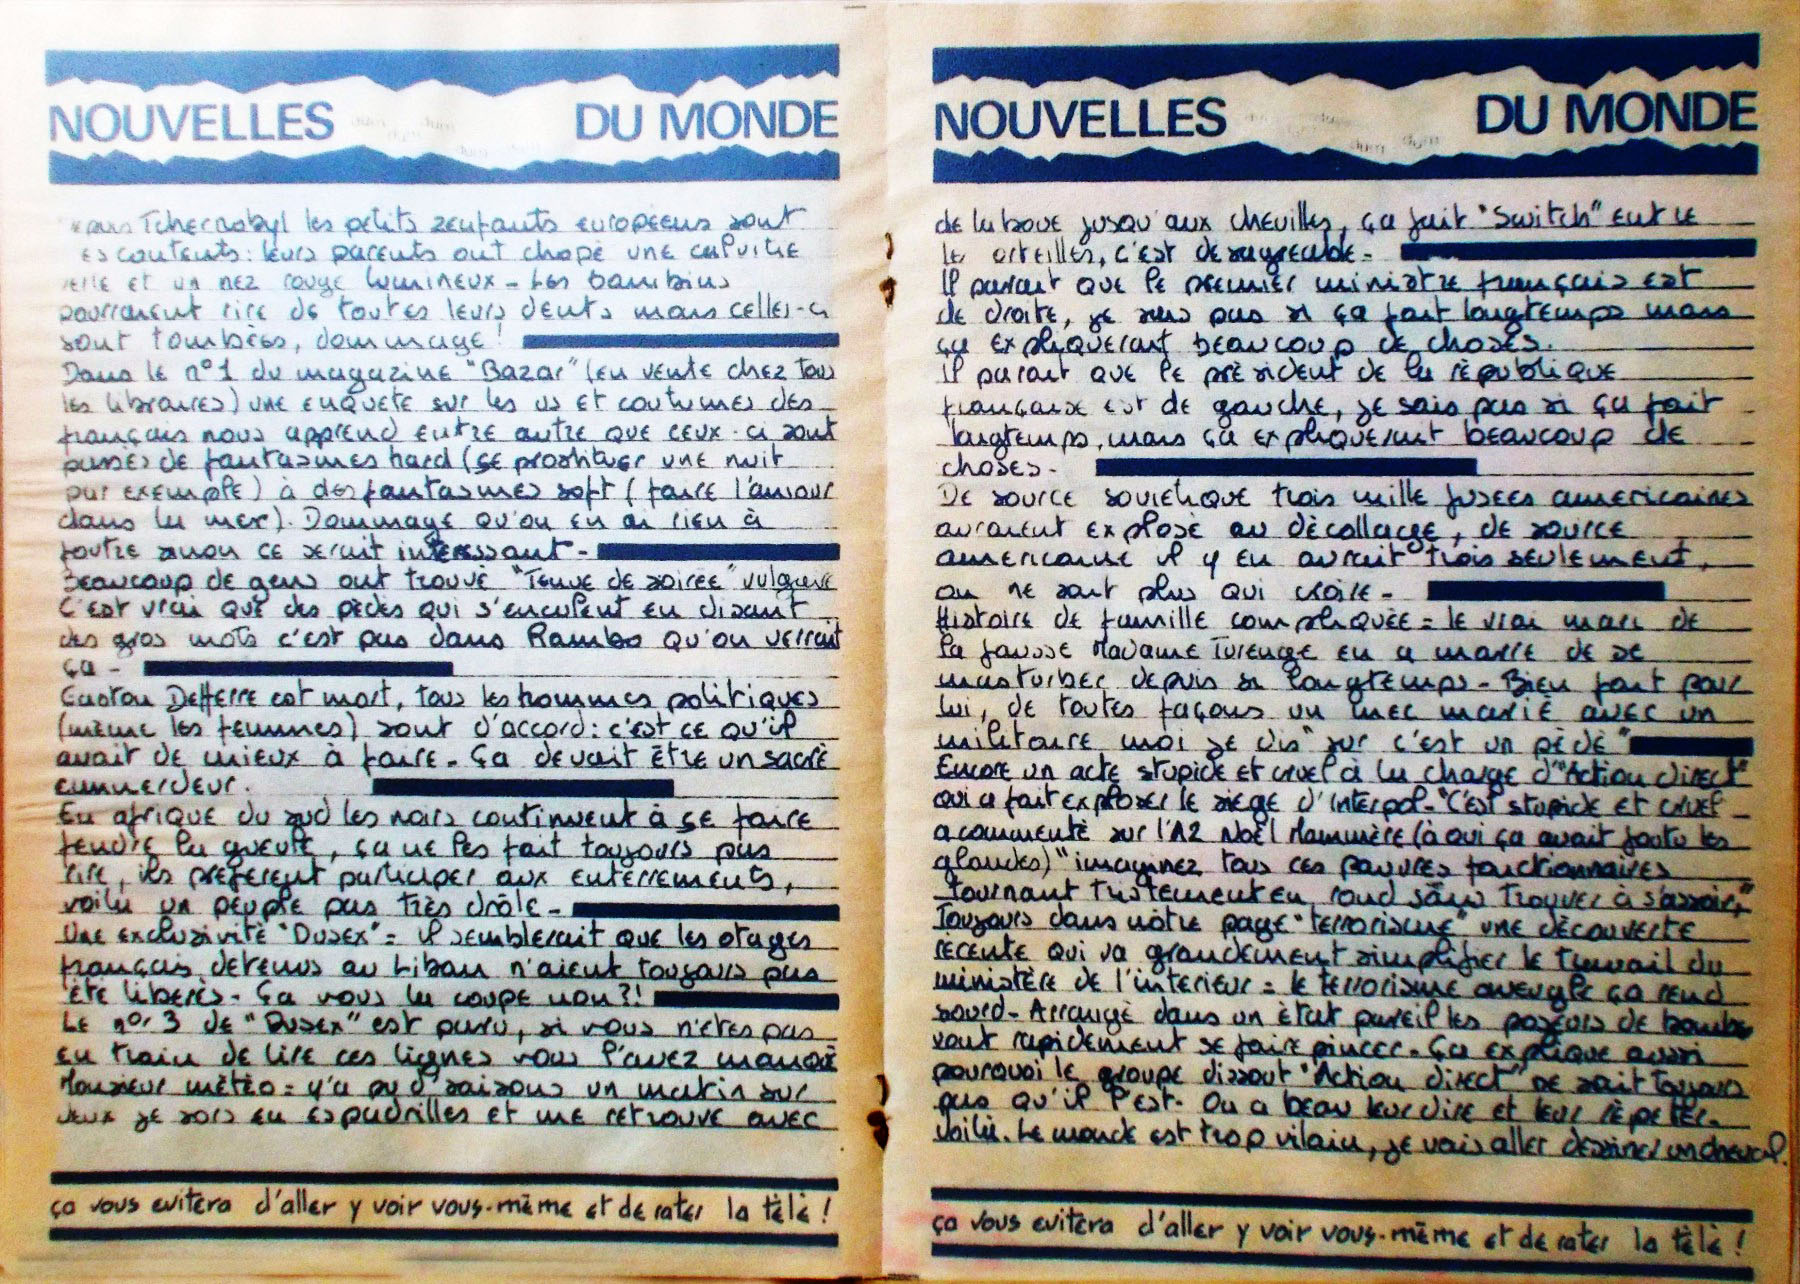 NOUVELLES DU MONDE
Tchernobyl les petits zenfants européens sont
contents: leurs parents ont chopé une calvitie
et un nez rouge lumineux - Les bambins
pourraient rire de toutes leurs dents mais celles-ci
sont tombées, dommage !
Dans le n°1 du magazine "Bazar" (en vente chez tous
les libraires) une enquete sur les us et coutumes des
français nous apprend entre autre que ceux-ci sont
passés de fantasmes hard (se prostituer une nuit
par exemple) à des fantasmes soft (faire l'amour
dans la mer). Dommage qu'on en ai rien à
foutre sinon ce serait interessant -
Beaucoup de gens ont trouvé "Tenue de soirée" vulgaire
C'est vrai que des pédés qui s'enculent en disant
des gros mots c'est pas dans Rambo qu'on verrait
ça -
Gaston Defferre est mort, tous les hommes politiques
(même les femmes) sont d'accord: c'est ce qu'il
avait de mieux à faire - Ça devait être un sacré
emmerdeur.
En afrique du sud les noirs continuent à se faire
fendre la gueule, ça ne les fait toujours pas
rire, ils préferent participer aux enterrements,
voila un peuple pas très drôle -
Une exclusivité "Dusex" = il semblerait que les otages
français detenus au Liban n'aient toujours pas
été liberés - Ça vous la coupe non ?!
Le n° 3 de "Dusex" est paru, si vous n'etes pas
en train de lire ces lignes vous l'avez manqué
Monsieur météo = y'a pu d'saisons un matin sur
deux je sors en espadrilles et me retrouve avec
ça vous evitera d'aller y voir vous-même et de rater la télé !
NOUVELLES DU MONDE
de la boue jusqu'aux chevilles, ça fait "Switch" entre
orteilles, c'est desagreable -
Il parait que le premier ministre français est
de droite, je sais pas si ça fait longtemps mais
ça expliquerait beaucoup de choses.
Il parait que le président de la république
française est de gauche, je sais pas si ça fait
longtemps, mais ça expliquerait beaucoup de
choses -
De source sovietique trois mille fusées americaines
auraient explosé au décollage, de source
americaine il y en aurait trois seulement,
on ne sait plus qui croire -
Histoire de famille compliquée = le vrai mari de
la fausse Madame Turenge en a marre de se
masturber depuis si longtemps - Bien fait pour
lui, de toutes façons un mec marié avec un
militaire moi je dis "sur c'est un pédé"
Encore un acte stupide et cruel à la charge d'"Action direct"
qui a fait exploser le siege d'interpol - "C'est stupide et cruel
a commenté sur l'A2 Noël Mammère (à qui ça avait foutu les
glandes) "imaginez tous ces pauvres fonctionnaires
tournant tristement en rond sans trouver à s'assoir,"
Toujours dans nôtre page "terrorisme" une découverte
recente qui va grandement simplifier le travail du
ministère de l'interieur = le terrorisme aveugle ça rend
sourd - Arrangé dans un état pareil les poseurs de bombe
vont rapidement se faire pincer - Ça explique aussi
pourquoi le groupe dissout "Action direct" ne sait toujours
pas qu'il l'est - On a beau leur dire et leur répeter -
Voila. Le monde est trop vilain, je vais aller dessiner un cheval.
ça vous evitera d'aller y voir vous-même et de rater la télé !